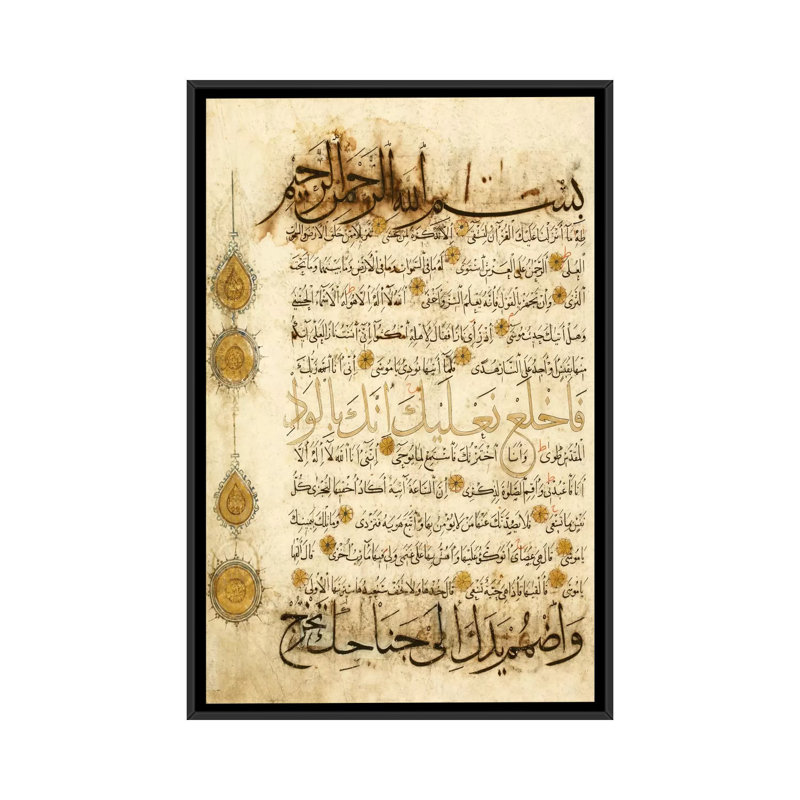 بسم الله الرحمن الرحيم
طه ما أنزلنا عليك القرآن لتشقى إلا تذكرة لمن يخشى تنزيلا ممن خلق الأرض والسموات
العلى الرحمن على العرش استوى له ما في السموات وما في الأرض وما بينهما وما تحت
الثرى وإن تجهر بالقول فإنه يعلم السر وأخفى الله لا إله إلا هو له الأسماء الحسنى
وهل أتيك حديث موسى إذ رأى نارا فقال لأهله امكثوا إني آنست نارا لعلي آتيكم
منها بقبس أو أجد على النار هدى فلما أتيها نودي يا موسى إني أنا ربك
فاخلع نعليك إنك بالواد
المقدس طوى وأنا اخترتك فاستمع لما يوحى إنني أنا الله لا إله إلا
أنا فاعبدني وأقم الصلوة لذكري إن الساعة آتية أكاد أخفيها لتجزى كل
نفس بما تسعى فلا يصدنك عنها من لا يؤمن بها واتبع هويه فتردى وما تلك بيمينك
يا موسى قال هي عصاي أتوكؤا عليها وأهش بها على غنمي ولي فيها مآرب أخرى قال ألقها
يا موسى فألقيها فإذا هي حية تسعى قال خذها ولا تخف سنعيدها سيرتها الأولى
واضمم يدك إلى جناحك تخرج